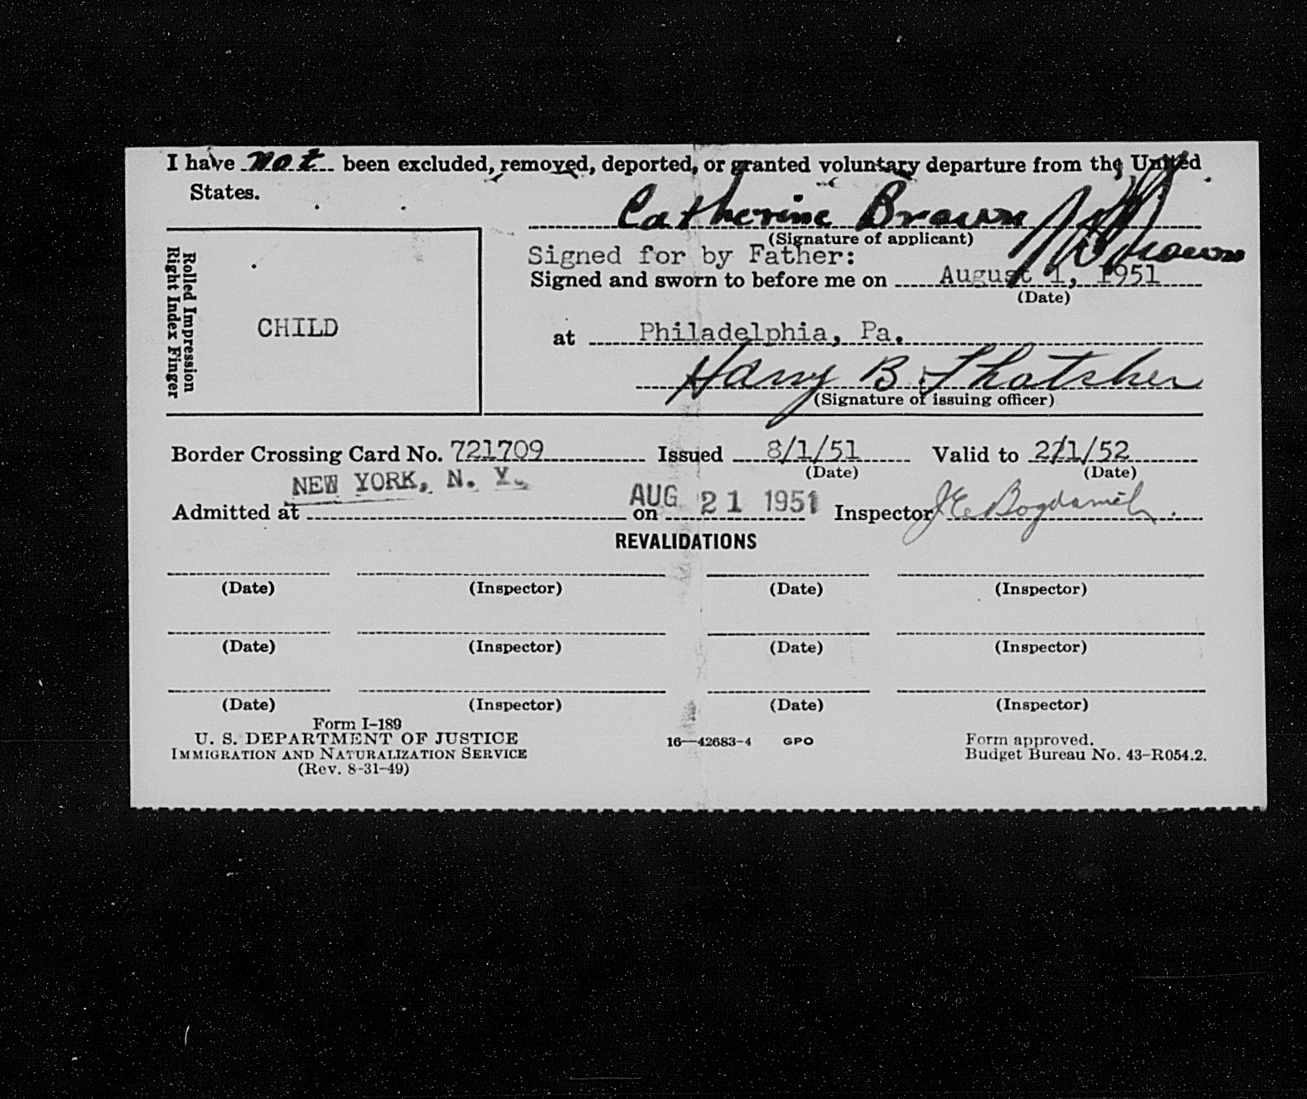 I have not been excluded, removed, deported, or granted voluntary departure from the United
States.
Catherine Brown
(Signature of applicant)
Signed for by Father:
Signed and sworn to before me on August 1, 1951
(Date)
Rolled Impression
Right Index Finger
CHILD
at Philadelphia, Pa.
Harry B Thatcher
(Signature of issuing officer)
Border Crossing Card No. 721709 Issued 8/1/51 Valid to 2/1/52
(Date) (Date)
NEW YORK, N. Y.
Admitted at on AUG 21 1951 Inspector
REVALIDATIONS
(Date) (Inspector) (Date) (Inspector)
(Date) (Inspector) (Date) (Inspector)
(Date) (Inspector) (Date) (Inspector)
Form I-189
U. S. DEPARTMENT OF JUSTICE 16—42683-4 GPO Form approved.
IMMIGRATION AND NATURALIZATION SERVICE Budget Bureau No. 43-R054.2.
(Rev. 8-31-49)